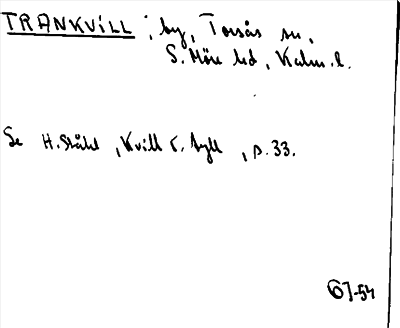 TRANKVILL ; by, Torsås sn,
S. Möre hd, Kalm. l.
Se H. Ståhl, Kvill o. tyll, s. 33.
GJ-54